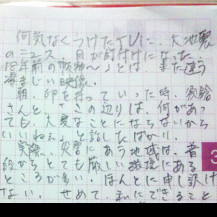 何気なくつけたTVに、大地震
のニュース。目が釘付けになった
18年前の版神〜とは また違う
凄まじい映像。
朝、卵を持っていった時、家船
さんと、この辺りは、何があっ
ても大変なことにならないから
いいねぇ、と話したばかり。
実際、災害にあう地域は、昔
からとても厳しい環境にある
ところが多い。ほんとに申し訳け
ない。せめて、私にできること
3